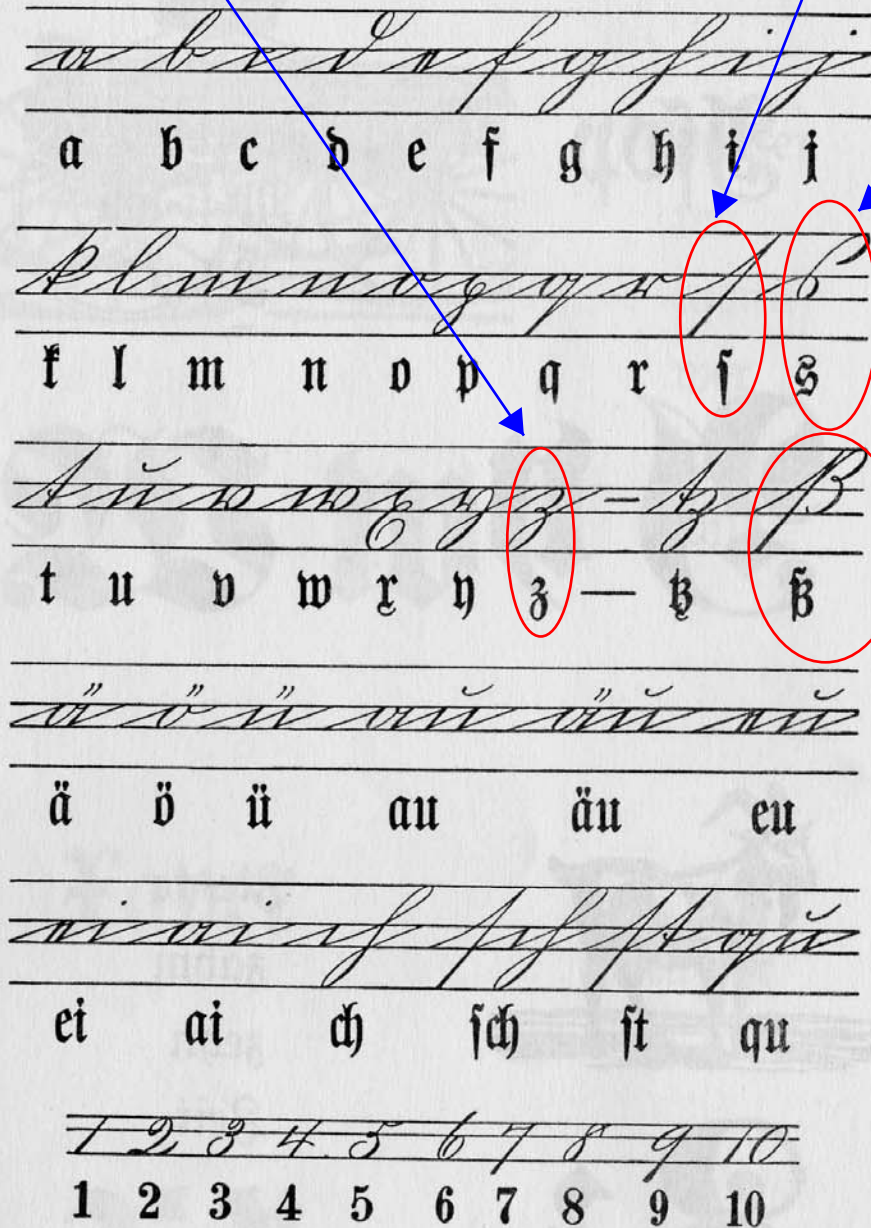 a b c d e f g h i j
a b c d e f g h i j
k l m n o p q r ſ s
k l m n o p q r ſ s
t u v w x y z – tz ß
t u v w x y z — tz ß
ä ö ü au äu eu
ä ö ü au äu eu
ei ai ch ſch ſt qu
ei ai ch ſch ſt qu
1 2 3 4 5 6 7 8 9 10
1 2 3 4 5 6 7 8 9 10